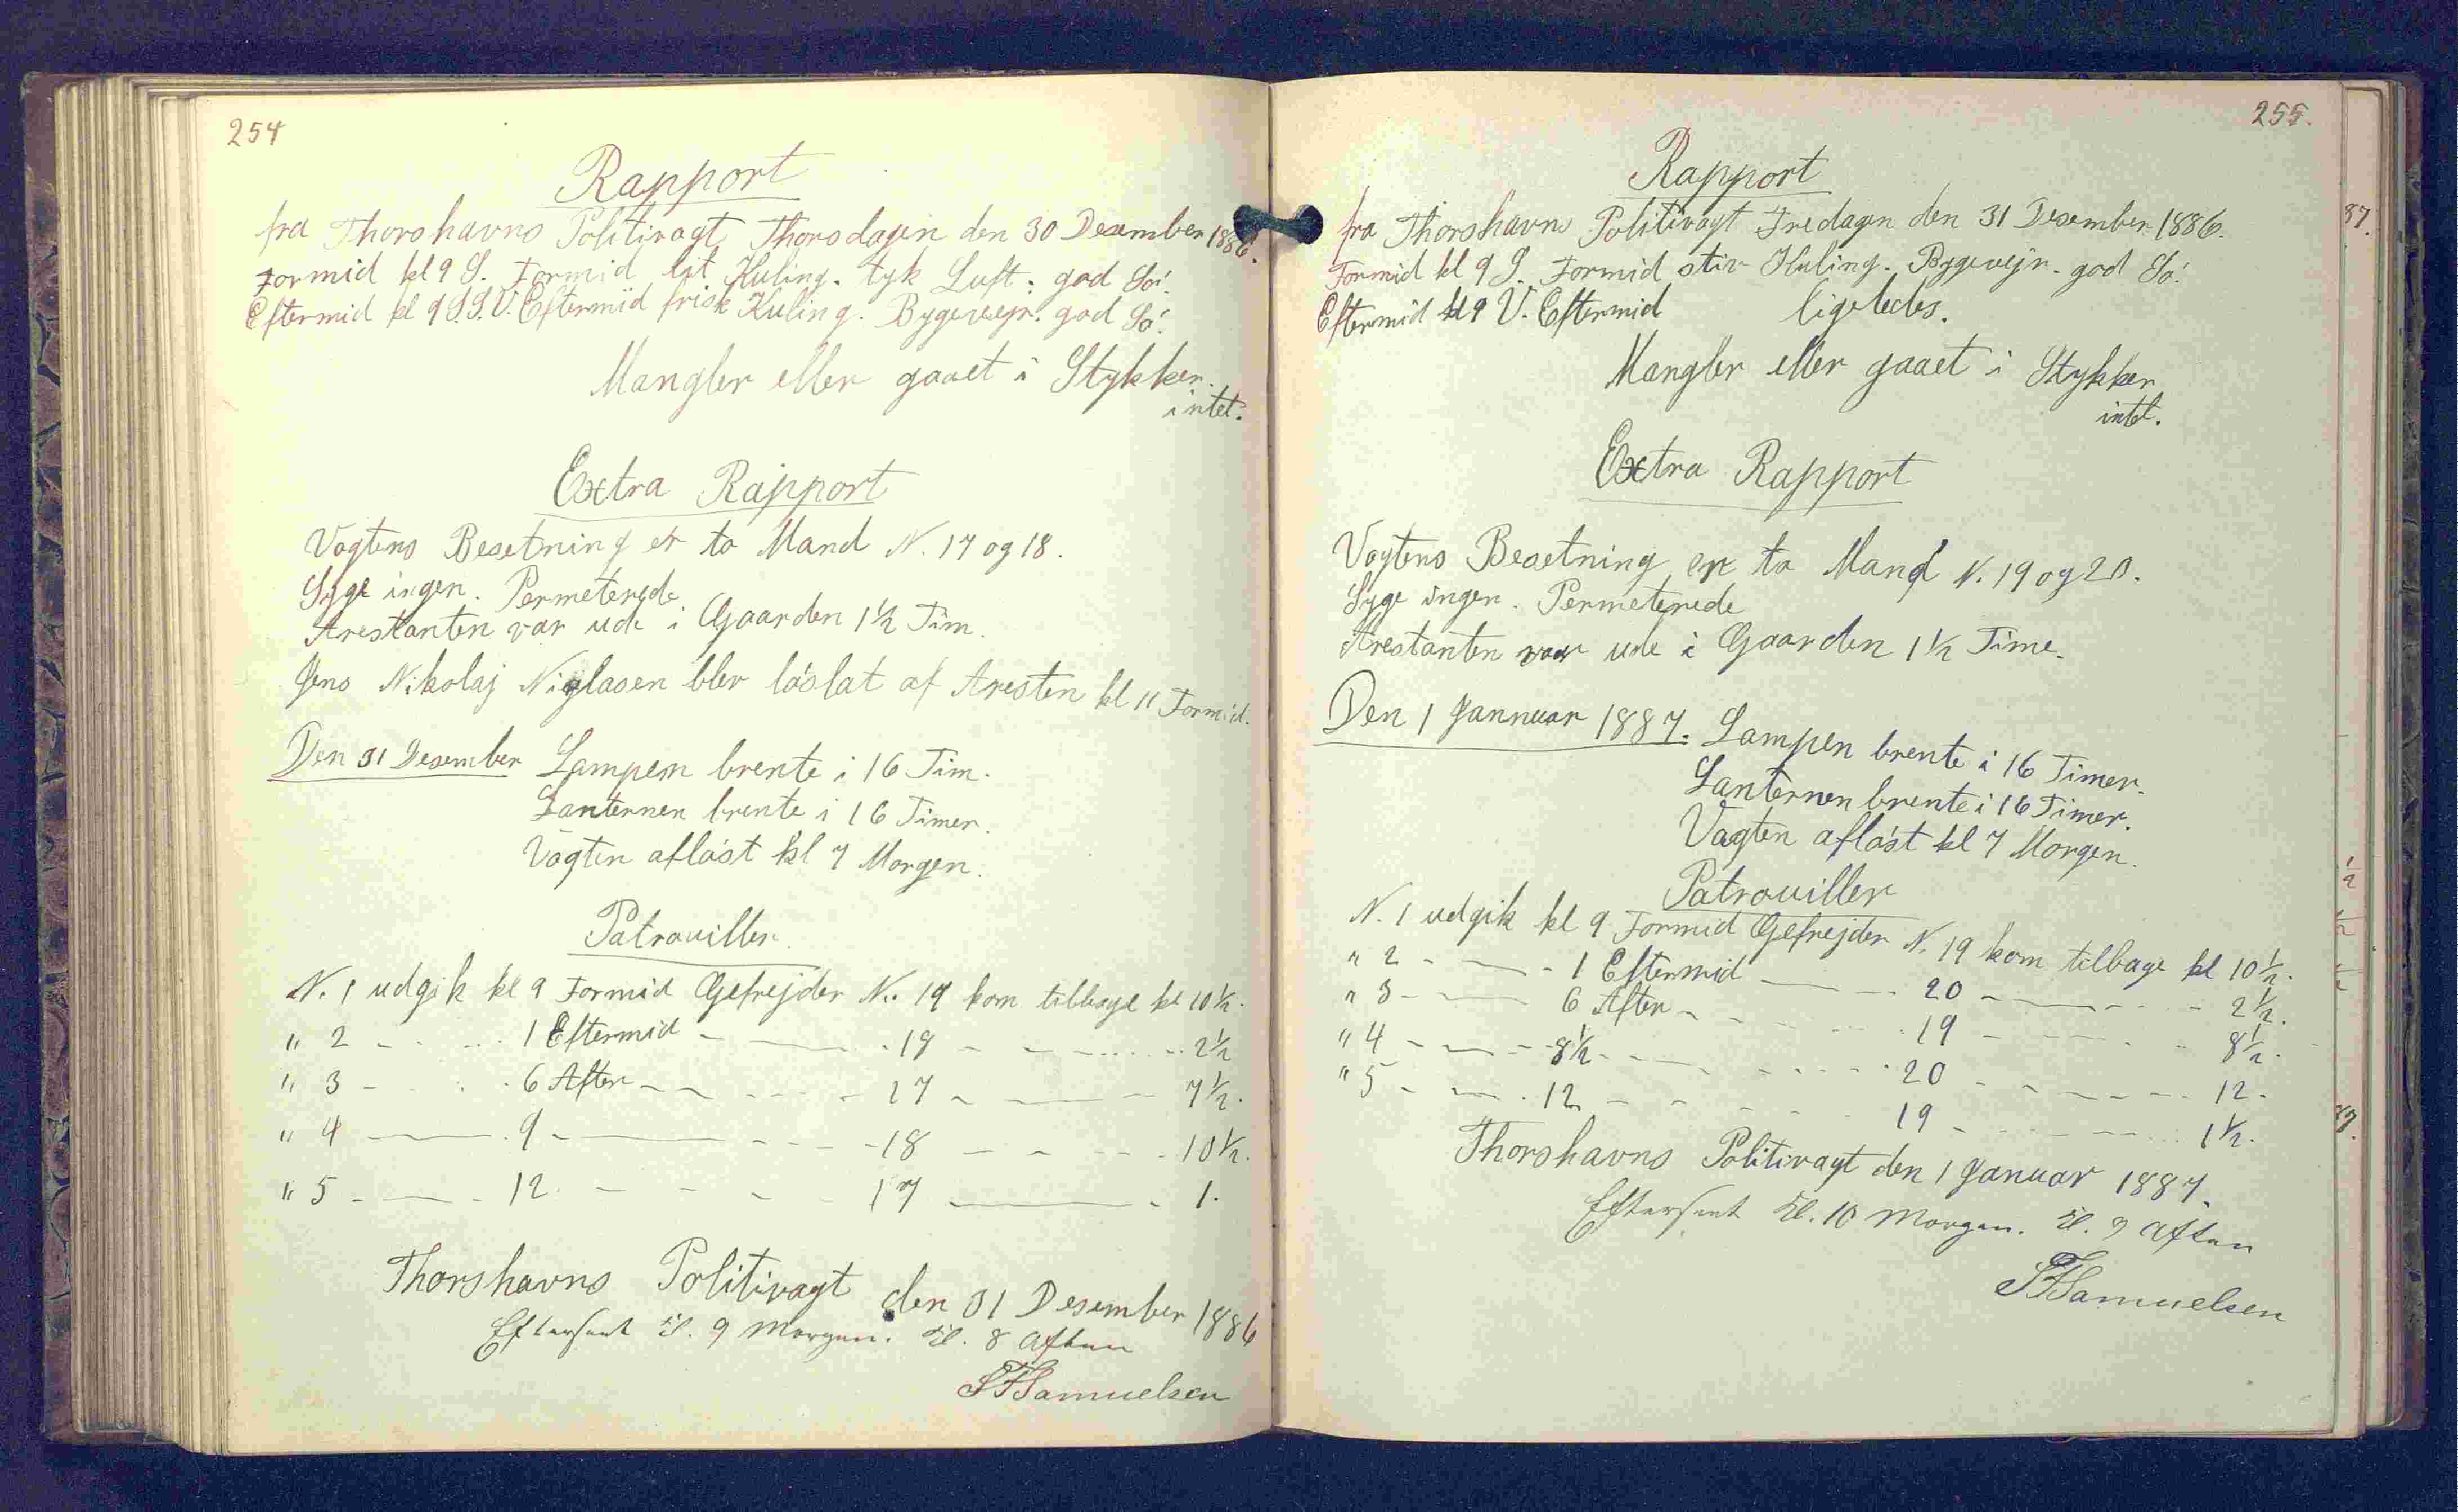 254
Rapport
fra Thorshavns Politivagt Thorsdagen den 30 Desember 1886.
Formid kl 9 S. Formid lit Kuling. tyk Luft. god Sö.
Eftermid kl 9 S.S.V. Eftermid frisk Kuling. Bygevejr. god Sö.
Mangler eller gaaet i Stykker.
intet.
Extra Rapport
Vagtens Besetning er to Mand N. 17 og 18.
Syge ingen. Permeterede
Arestanten var ude i Gaarden 1 1/2 Tim.
Jens Nikolaj Niglasen blev löslat af Aresten kl 11 Formid.
Den 31 Desember Lampen brente i 16 Tim.
Lanternen brente i 16 Timer.
Vagten aflöst kl 7 Morgen.
Patrouiller.
N. 1 udgik kl 9 Formid Gefrejder N. 19 kom tilbage kl 10 1/2.
" 2 - - 1 Eftermid - - 18 - - 2 1/2
" 3 - - 6 Aften - - 17 - - 7 1/2.
" 4 - - 9 - - 18 - - 10 1/2.
" 5 - - 12 - - 17 - - 1.
Thorshavns Politivagt den 31 Desember 1886
Efterseet Kl. 9 Morgen. Kl. 8 Aften
Samuelsen
255.
Rapport
fra Thorshavns Politivagt Fredagen den 31 Desember 1886.
Formid kl 9 S. Formid stiv Kuling. Bygevejr. god Sö.
Eftermid kl 9 V. Eftermid ligeledes.
Mangler eller gaaet i Stykker
intet.
Extra Rapport
Vagtens Besetning er to Mand N. 19 og 20.
Syge ingen. Permeterede
Arestanten var ude i Gaarden 1 1/2 Time.
Den 1 Jannuar 1887. Lampen brente i 16 Timer.
Lanternen brente i 16 Timer.
Vagten aflöst kl 7 Morgen.
Patrouiller
N. 1 udgik kl 9 Formid Gefrejder N. 19 kom tilbage kl 10 1/2.
" 2 - - 1 Eftermid - - 20 - - 2 1/2.
" 3 - - 6 Aften - - 19 - - 8 1/2.
" 4 - - 8 1/2 - - 20 - - 12.
" 5 - - 12 - - 19 - - 1 1/2.
Thorshavns Politivagt den 1 Januar 1887.
Efterseet Kl. 10 Morgen. Kl. 9 Aften
Samuelsen